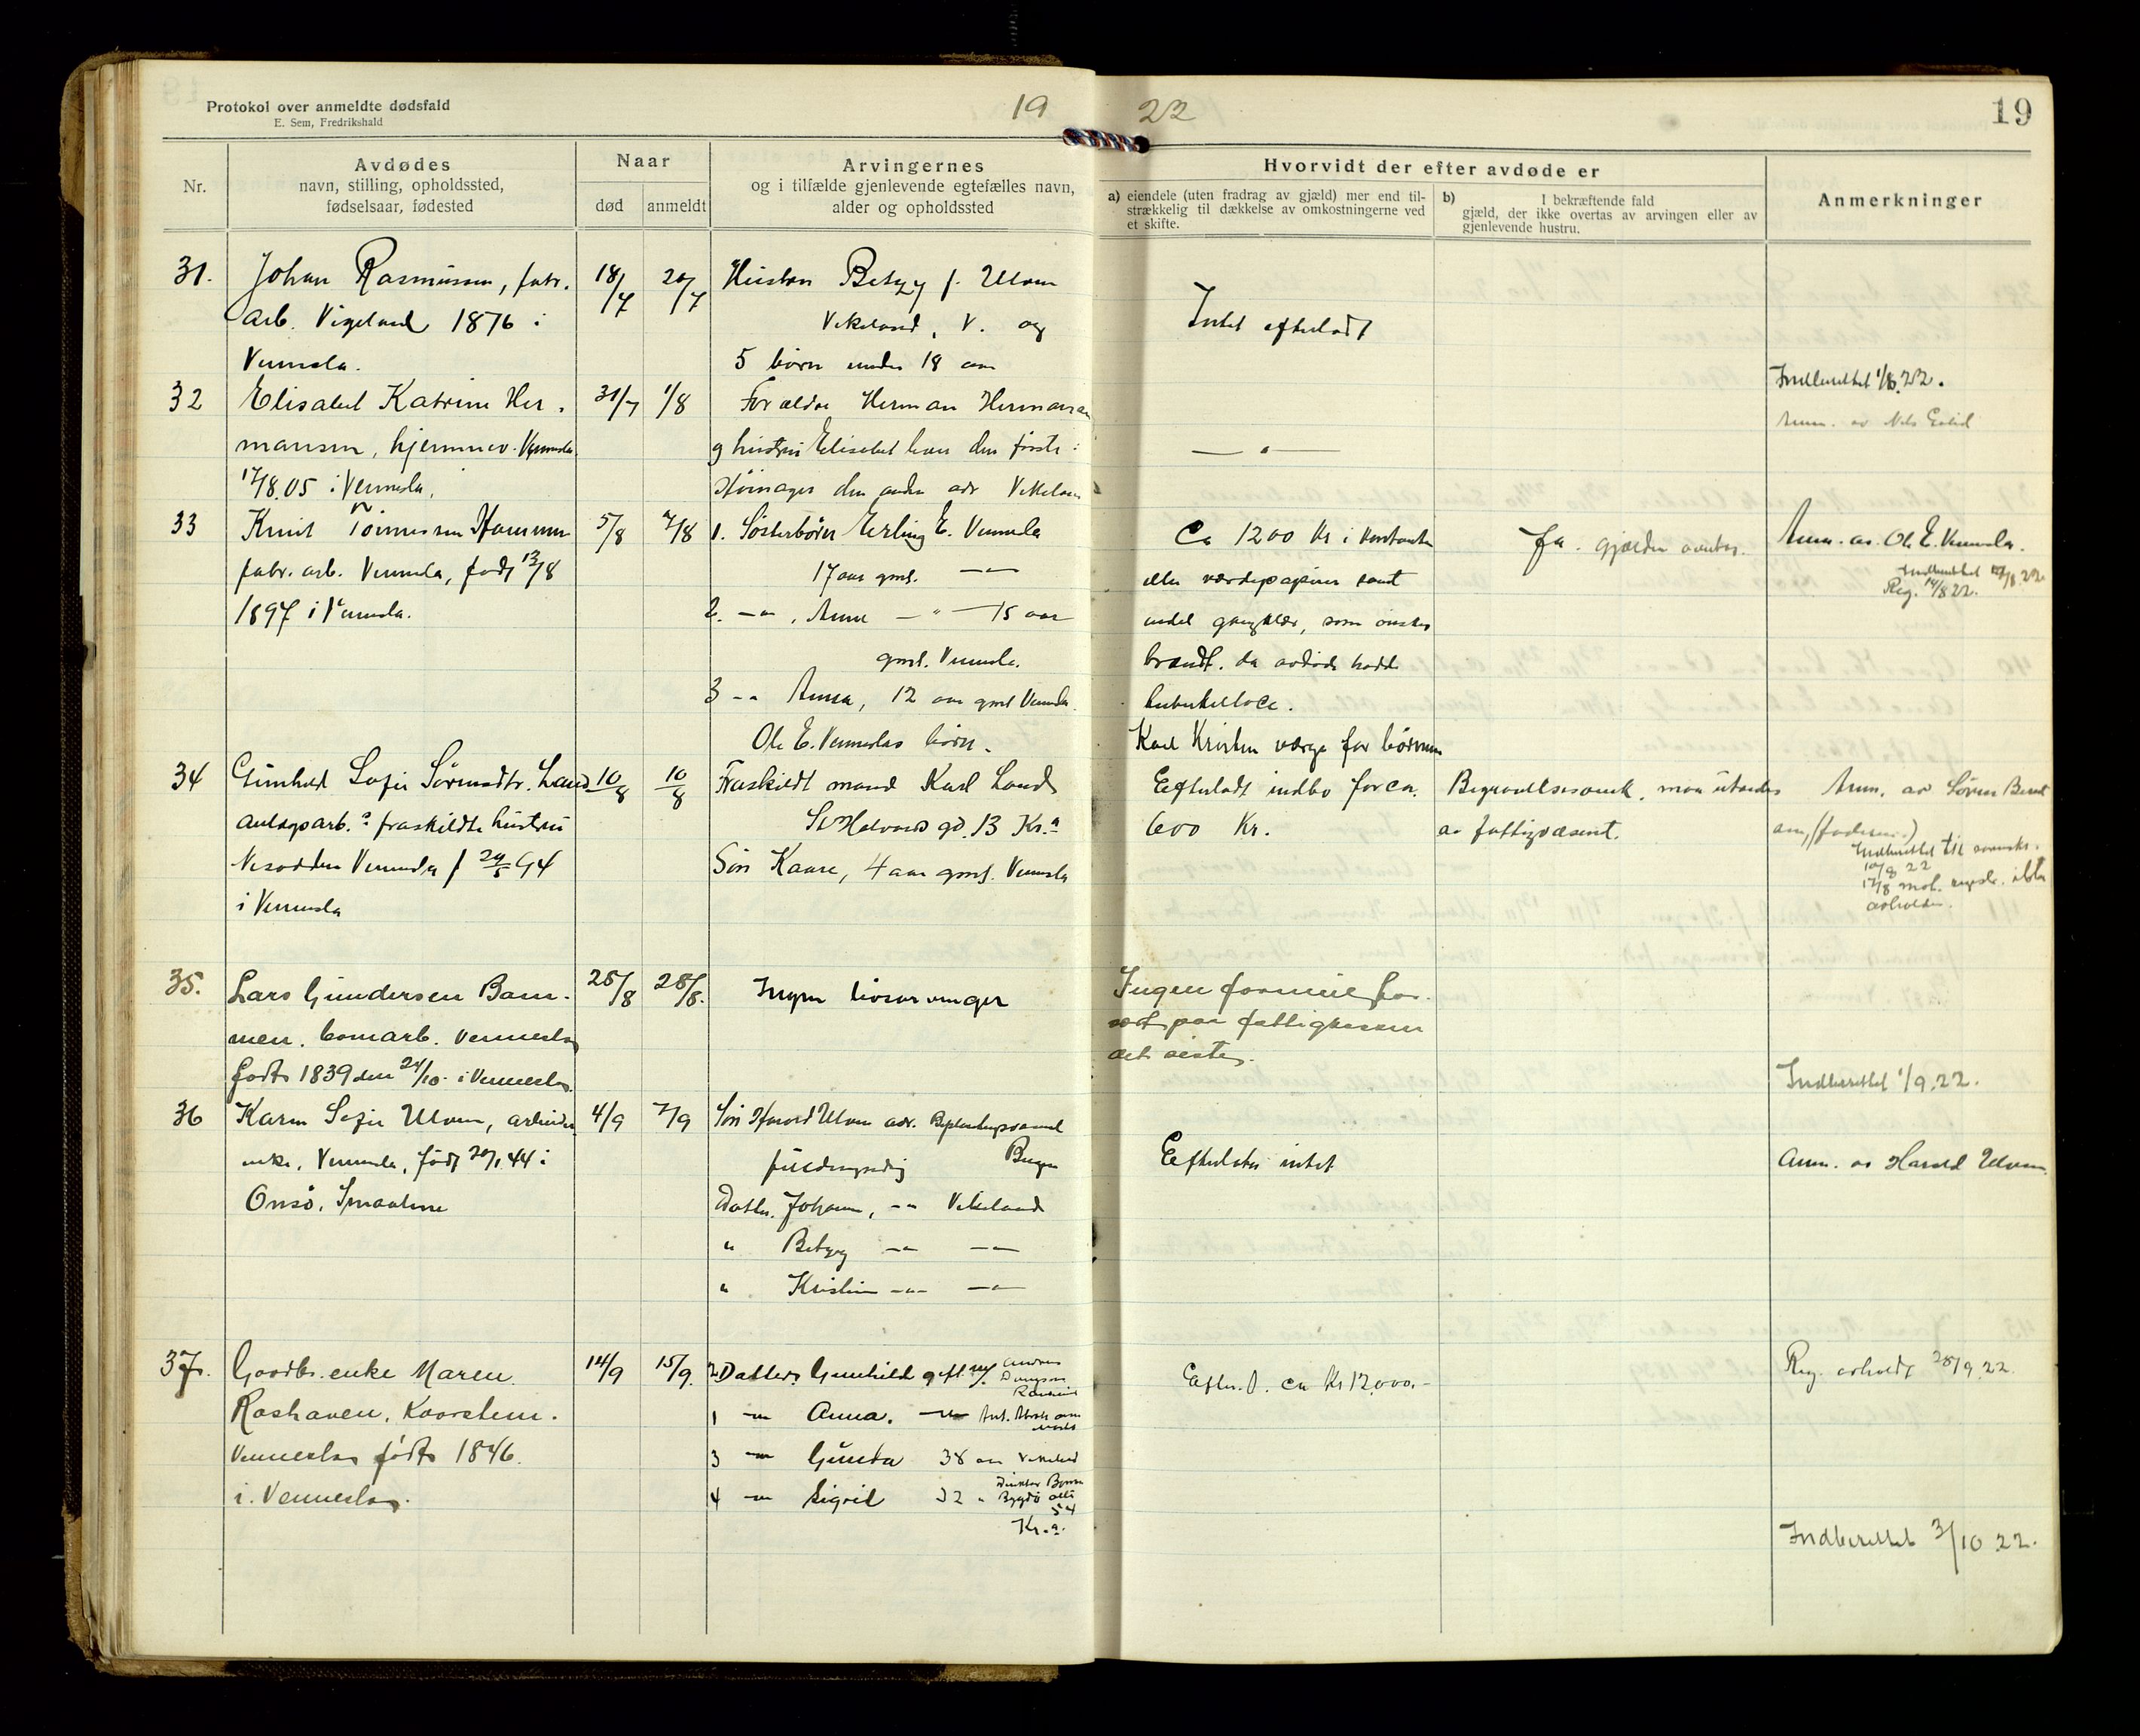 Protokol over anmeldte dødsfald
E. Sem, Fredrikshald
19 22
19
Nr.
Avdødes
navn, stilling, opholdssted,
fødselsaar, fødested
Naar
død
anmeldt
Arvingernes
og i tilfælde gjenlevende egtefælles navn,
alder og opholdssted
Hvorvidt der efter avdøde er
a) eiendele (uten fradrag av gjæld) mer end til-
strækkelig til dækkelse av omkostningerne ved
et skifte.
b) I bekræftende fald
gjæld, der ikke overtas av arvingen eller av
gjenlevende hustru.
Anmerkninger
31.
Johan Rasmussen, fabr.
arb. Vigeland 1876 i
Vennesla.
18/7
20/7
Hustru Betzy f. Ulven
Vikeland, V. og
5 børn under 18 aar
Intet efterladt
Indberettet 1/8.22.
32
Elisabet Katrine Her
mansen, hjemmev. Vennesla
17/8.05 i Vennesla.
31/7
1/8
Forældre Herman Hermansen
og hustru Elisabet den første i
den anden adr Vikeland
— " —
Anm. av Nils
33
Knut Tønnessen Hammen
fabr. arb. Vennesla, født 13/8
1897 i Vennesla.
5/8
7/8
1. Søsterbørn Erling E. Vennesla
17 aar gml. — " —
2. — " , Anne — " — 15 aar
gml. Vennesla.
3 - " Anna, 12 aar gml Vennesla.
Ole E. Venneslas børn.
Ca 1200 Kr i kontanter
eller værdipapirer samt
endel gangklær, som ønskes
brændt. da avdøde hadde
tuberkulose.
Karl Kristen værge for børnene
Ja. gjælden overtas.
Anm. av. Ole E. Vennesla.
Indberettet /8.22
Reg. 14/8 22.
34
Gunhild Sofie Sørensdtr. Land
anlægsarb.s fraskildte hustru
Nesodden Vennesla f 29/5 94
i Vennesla
10/8
10/8
Fraskildt mand Karl Land
St Halvards gd. 13 Kr.a
Søn Kaare, 4 aar gml. Vennesla
Efterladt indbo for ca.
600 Kr.
Begravelsesomk. maa utredes
av fattigvæsenet.
Anm. av Søren
(faderen)
Indberettet til
10/8 22
17/8 reg. ikke
avholdes.
35.
Lars Gundersen Bam-
men. tomarb. Vennesla
født 1839 den 24/10. i Vennesla.
25/8
28/8.
Ingen livsarvinger
Ingen formue for-
sørt paa fattigkassen
det siste.
Indberettet 1/9.22.
36
Karen Sofie Ulven, arbeider
enke, Vennesla, født 20/1 44 i
Onsø, Smaalene
4/9
7/9
Søn Harald Ulven adr.
fuldmyndig Bergen
Datter. Johanne, - " Vikeland
" Betzy - " — " —
" Kristine - " — " —
Efterlater intet
Anm. av Harald Ulven.
37.
Gaardbr. enke Maren
Roshaven, Kvarstein.
Vennesla født 1846.
i. Vennesla.
14/9
15/9.
2 Datter. Gunhild gift m/
1 — " Anna. — "
3 — " Gunda 38 aar Vikeland
4 — " Sigrid 32 "
Bygdø alle
54
Kr.a.
Efterl. ca Kr 12,000.-
Reg. avholdt 28/9.22.
Indberettet 3/10 22.